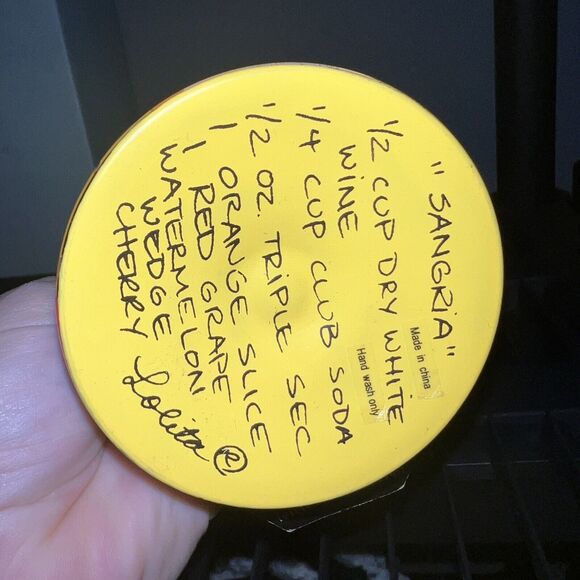 "SANGRIA"
1/2 CUP DRY WHITE
WINE
1/4 CUP CLUB SODA
1/2 OZ. TRIPLE SEC
1 ORANGE SLICE
1 RED GRAPE
WATERMELON
WEDGE
CHERRY
Lolita ®
Made in china
Hand wash only